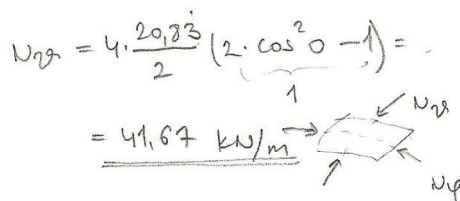 Nϑ = 4·20,83̇/2 (2·cos²0 − 1) =
1
= 41,67 kN/m
Nϑ
Nφ